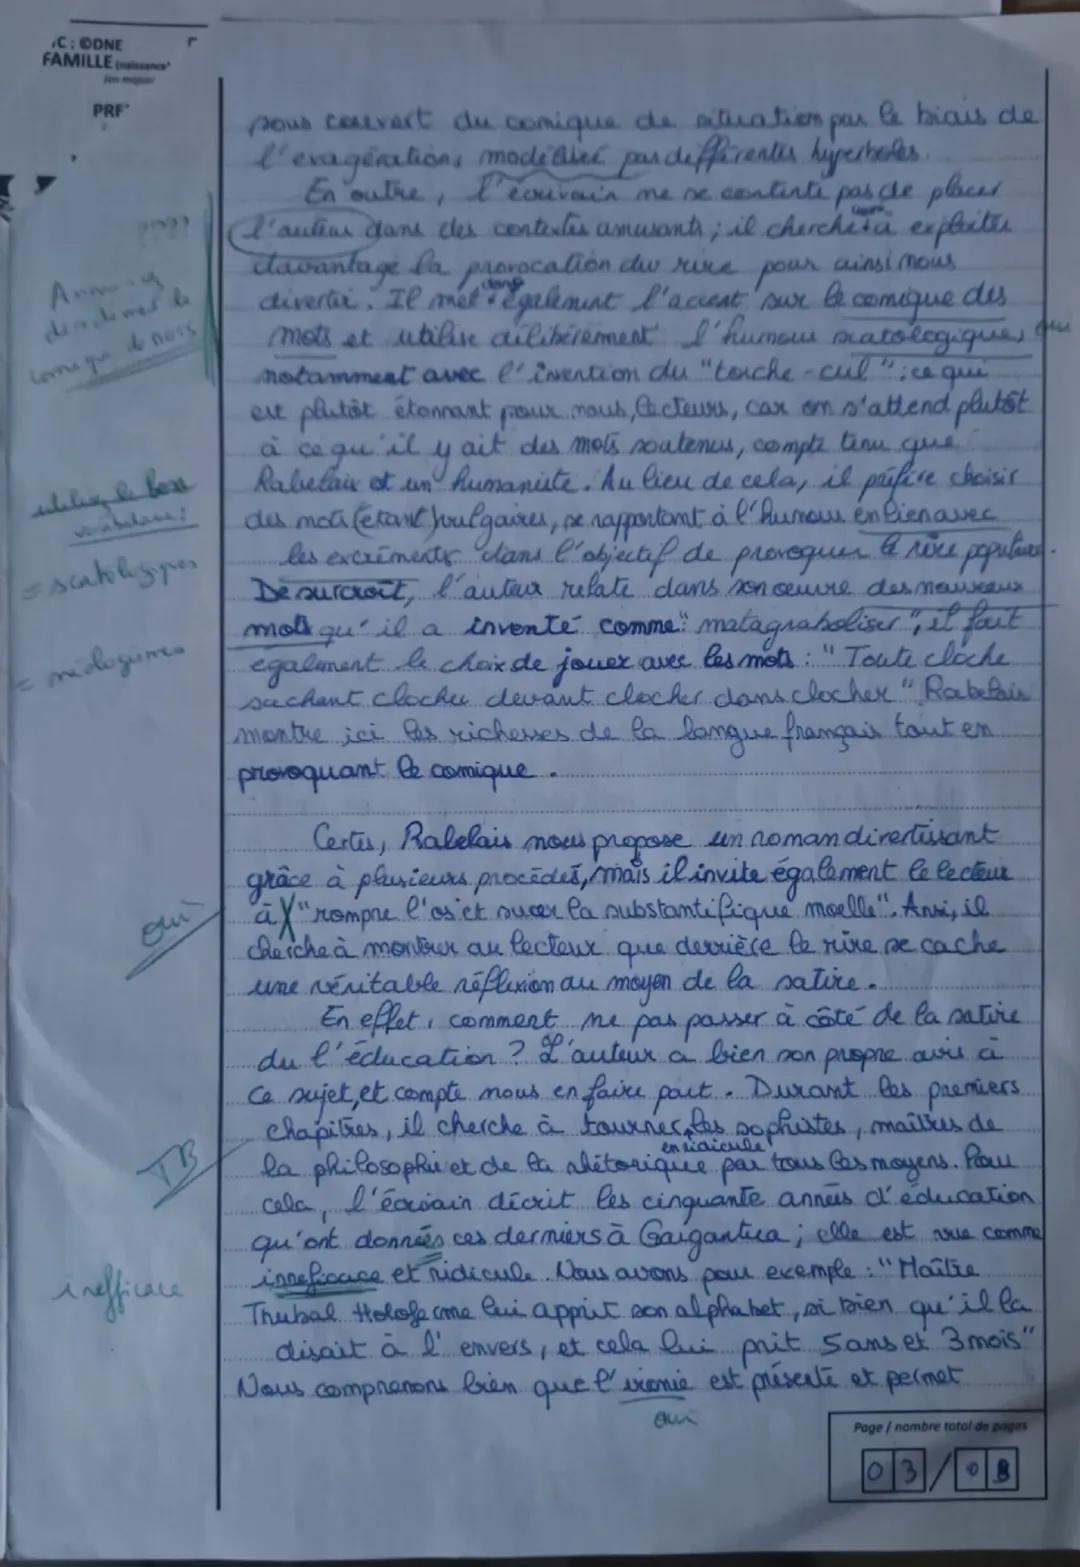 C : ©DNE
FAMILLE (naissance)
(en majus
PRF
sous couvert du comique de situation par le biais de
l'exagérations, modélisée par différentes hyperboles.
En outre, l'écrivain ne se contente pas de placer
l'auteur dans des contextes amusants ; il cherche à exploiter
davantage la provocation du rire pour ainsi nous
divertir. Il met donc également l'accent sur le comique des
mots et utilise délibérément l'humour scatologique,
notamment avec l'invention du "torche-cul" ; ce qui
est plutôt étonnant pour nous, lecteurs, car on s'attend plutôt
à ce qu'il y ait des mots soutenus, compte tenu que
Rabelais est un humaniste. Au lieu de cela, il préfère choisir
des mots (étant) vulgaires, se rapportant à l'humour en lien avec
les excréments dans l'objectif de provoquer le rire populaire.
De surcroît, l'auteur relate dans son œuvre des nouveaux
mots qu'il a inventé comme : "matagraboliser", il fait
également le choix de jouer avec les mots : "Toute cloche
sachant clocher devant clocher dans clocher" Rabelais
montre ici les richesses de la langue français tout en
provoquant le comique.
Certes, Rabelais nous propose un roman divertissant
grâce à plusieurs procédés, mais il invite également le lecteur
à "rompre l'os et sucer la substantifique moelle". Ansi, il
cherche à montrer au lecteur que derrière le rire se cache
une véritable réflexion au moyen de la satire.
En effet, comment ne pas passer à côté de la satire
du l'éducation ? L'auteur a bien son propre avis à
ce sujet, et compte nous en faire part. Durant les premiers
chapitres, il cherche à tourner en ridicule les sophistes, maîtres de
la philosophie et de la rhétorique par tous les moyens. Pour
cela, l'écrivain décrit les cinquante années d'éducation
qu'ont données ces derniers à Gargantua ; elle est vue comme
inneficace et ridicule. Nous avons pour exemple : "Maître
Thubal Holoferne lui apprit son alphabet, si bien qu'il la
disait à l'envers, et cela lui prit 5 ans et 3 mois"
Nous comprenons bien que l'ironie est présente et permet
oui
comique de mots
utilisez le bon
vocabulaire !
= scatologique
= néologismes
oui
TB
inefficace
Page / nombre total de pages
03/08